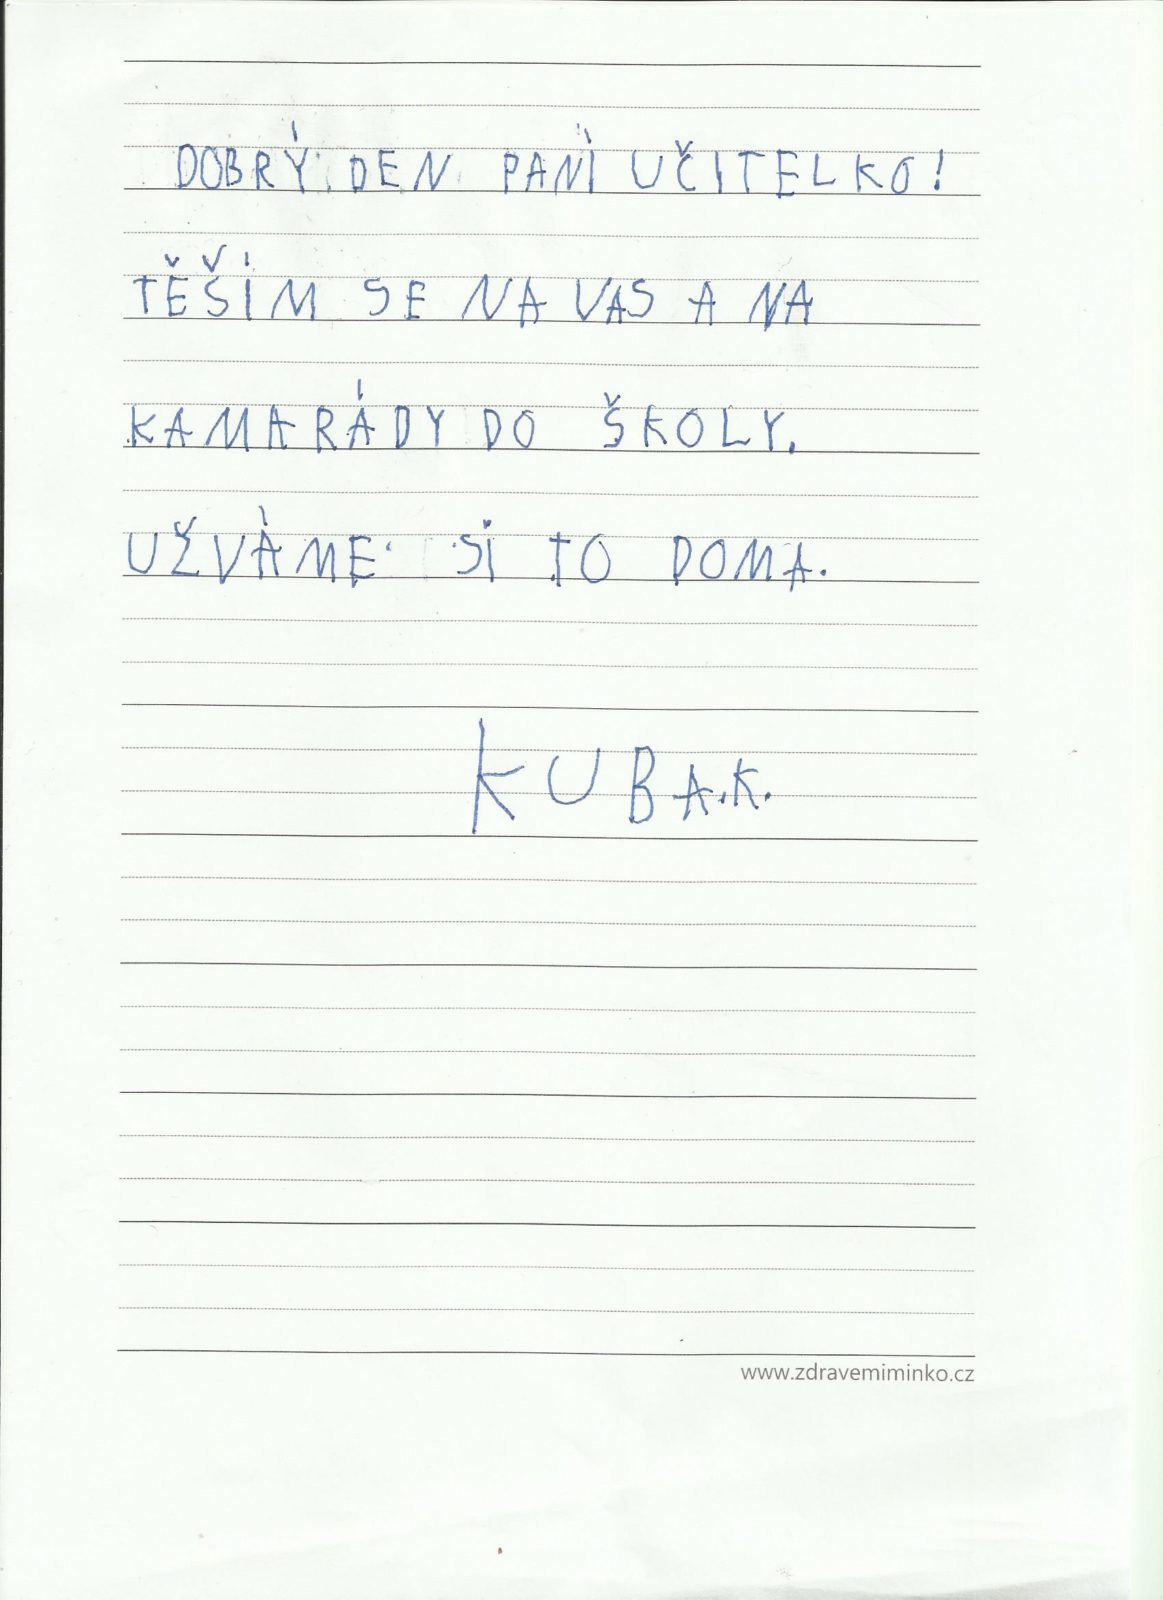 DOBRÝ DEN PANÍ UČITELKO!
TĚŠÍM SE NA VAS A NA
KAMARÁDY DO ŠKOLY.
UŽVÁME SI TO DOMA.
KUBA.K.
www.zdravemiminko.cz